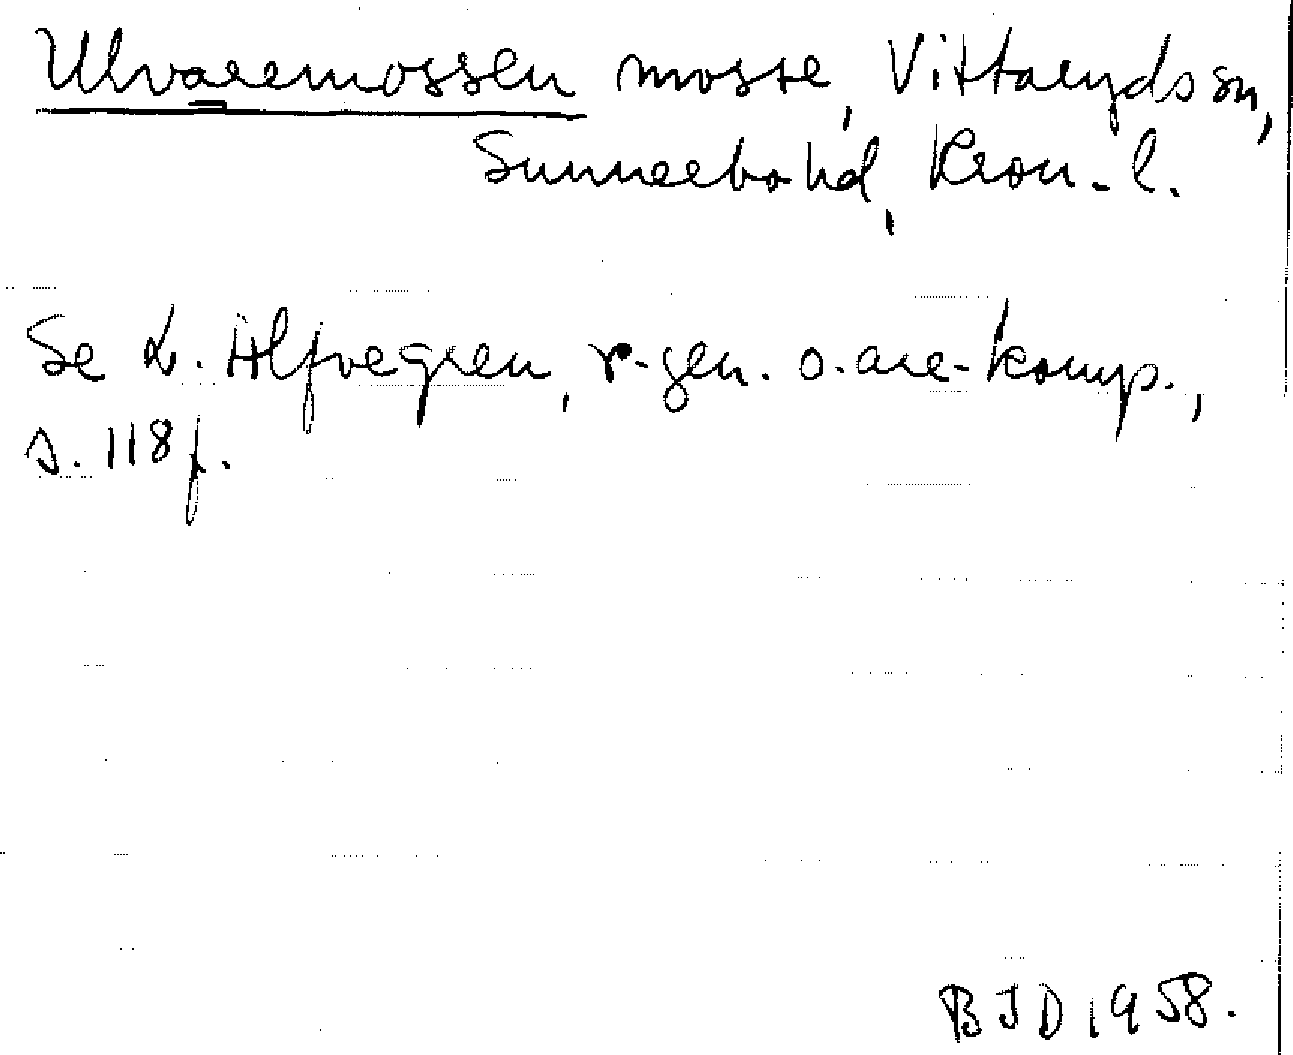 Ulvaremossen mosse, Vittaryds sn,
Sunnerbo hd, Kron. l.
Se L. Alfvegren, r-gen. o. are-komp.,
s. 118 f.
BJD 1958.